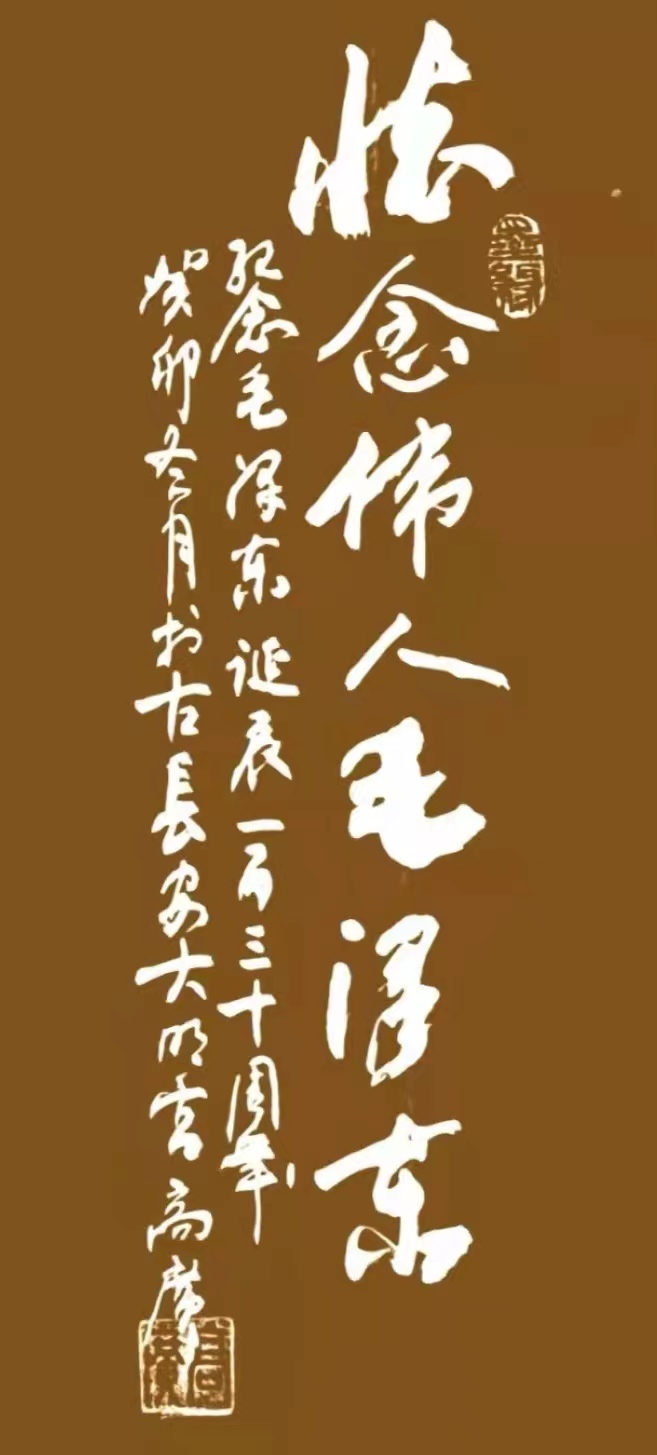 怀念伟人毛泽东
纪念毛泽东诞辰一百三十周年
癸卯冬月於古長安大明宫高廣